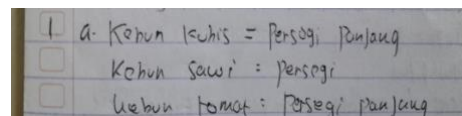 1 a. Kebun kubis = Persegi Panjang
Kebun sawi : persegi
kebun tomat : Persegi Panjang